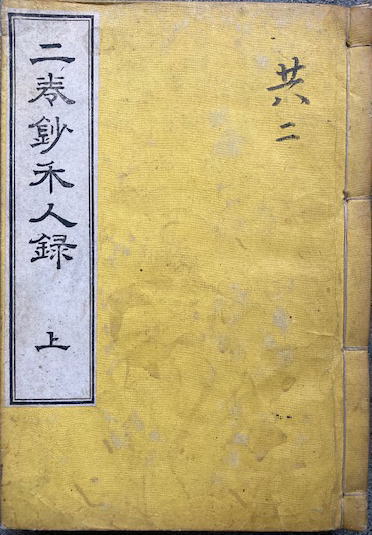 二巻鈔禾人録 上
共二